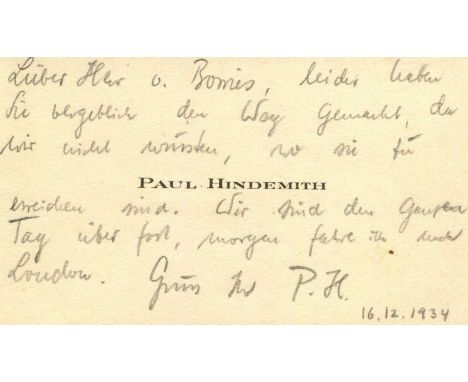 Lieber Herr v. Borries, leider haben
Sie vergeblich den Weg gemacht, da
wir nicht wussten, wo sie zu
PAUL HINDEMITH
erreichen sind. Wir sind den ganzen
Tag über fort, morgen fahre ich nach
London. Gruss Ihr P. H.
16.12.1934